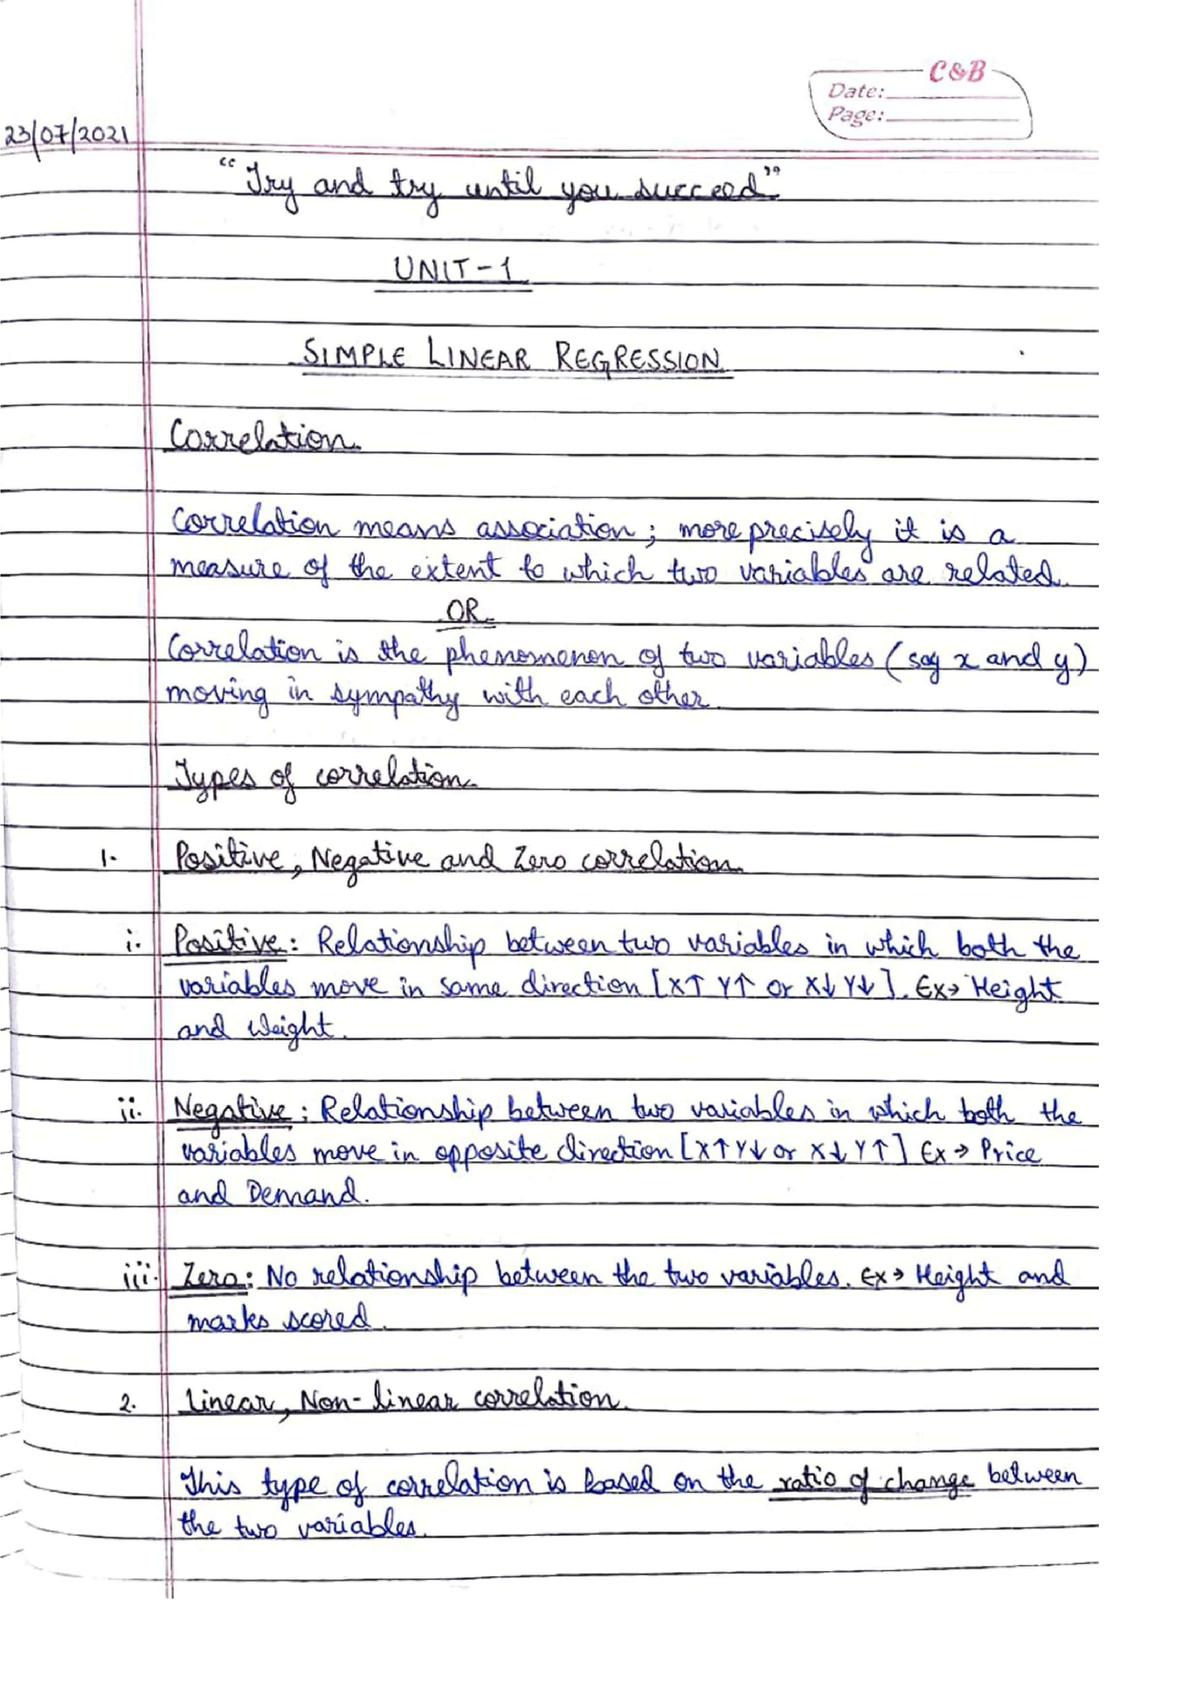 C&B
Date:
Page:
23/07/2021
"Try and try until you succeed"
UNIT-1
SIMPLE LINEAR REGRESSION
Correlation
Correlation means association; more precisely it is a
measure of the extent to which two variables are related.
OR
Correlation is the phenomenon of two variables (say x and y)
moving in sympathy with each other.
Types of correlation
1. Positive, Negative and Zero correlation
i. Positive: Relationship between two variables in which both the
variables move in same direction [X↑ Y↑ or X↓ Y↓]. Ex→ Height
and Weight.
ii. Negative: Relationship between two variables in which both the
variables move in opposite direction [X↑Y↓ or X↓ Y↑] Ex→ Price
and Demand.
iii. Zero: No relationship between the two variables. Ex→ Height and
marks scored.
2. Linear, Non-linear correlation.
This type of correlation is based on the ratio of change between
the two variables.